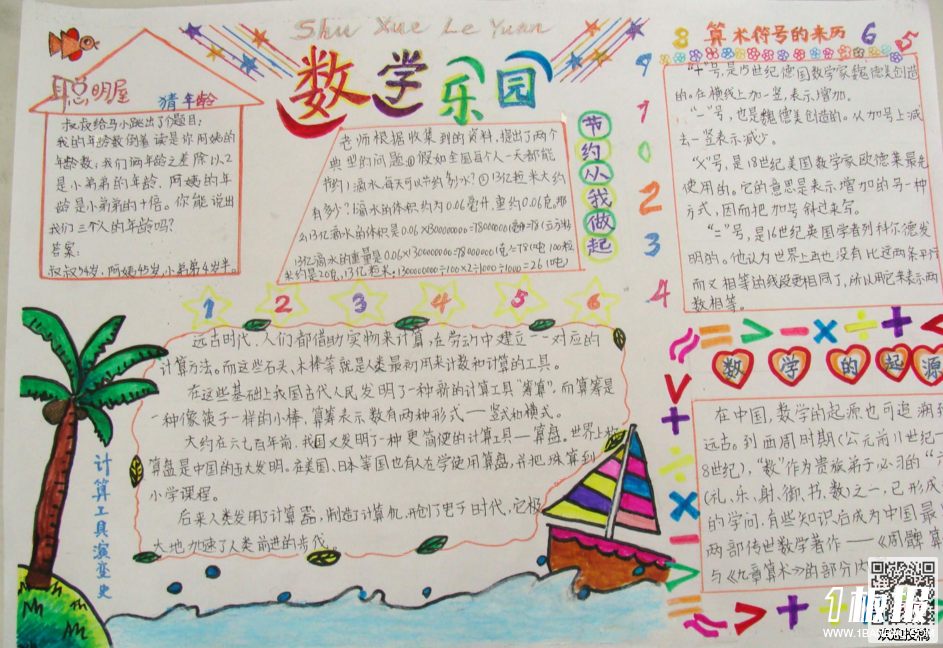 Shu Xue Le Yuan
数学乐园
聪明屋
猜年龄
叔叔给马小跳出了个题目：
我的年龄数倒着读是你阿姨的
年龄数；我们俩年龄之差除以2
是小弟弟的年龄，阿姨的年
龄是小弟弟的十倍。你能说出
我们三个人的年龄吗？
答案：
叔叔54岁，阿姨45岁，小弟弟4岁半。
老师根据收集到的资料，提出了两个
典型的问题：①假如全国每个人一天都能
节约1滴水，每天可以节约多少水？②13亿粒米大约
有多少？1滴水的体积约为0.06毫升，重约0.06克，那
么13亿滴水的体积是0.06×1300000000=78000000
13亿滴水的重量是0.06×1300000000=78000000克=78吨 100粒
米约是20克，13亿粒米：1300000000÷100×2÷1000÷1000=26(吨)
节约从我做起
9
1
0
2
3
4
8
算术符号的来历
6
5
“+”号，是15世纪德国数学家魏德美创造
的。在横线上加一竖，表示增加。
“-”号，也是魏德美创造的。从加号上减
去一竖表示减少。
“×”号，是18世纪美国数学家欧德莱最先
使用的。它的意思是表示增加的另一种
方式，因而把加号斜过来写。
“=”号，是16世纪英国学者列科尔德发
明的。他认为世界上再也没有比这两条平行
而又相等的线段更相同了，所以用它来表示两
数相等。
1 2 3 4 5 6
远古时代，人们都借助实物来计算，在劳动中建立一一对应的
计算方法。而这些石头、木棒等就是人类最初用来计数和计算的工具。
在这些基础上我国古代人民发明了一种新的计算工具“筹算”，而算筹是
一种像筷子一样的小棒，算筹表示数有两种形式——竖式和横式。
大约在六七百年前，我国又发明了一种更简便的计算工具——算盘。世界上
算盘是中国的五大发明。在美国、日本等国也有人在学使用算盘，并把珠算列
小学课程。
后来人类发明了计算器，制造了计算机，开创了电子时代，它极
大地加速了人类前进的步伐。
计算工具演变史
≈ = > - × ÷ + <
数学的起源
∨
+
÷
×
-
>
=
在中国，数学的起源也可追溯到
远古。到西周时期（公元前11世纪一
8世纪），“数”作为贵族弟子必习的“六
（礼、乐、射、御、书、数）之一，已形成
的学问，有些知识后成为中国最
两部传世数学著作——《周髀算
与《九章算术》的部分内
≈ > + ÷
1板报
WWW.1BANBAO.COM
欢迎投稿